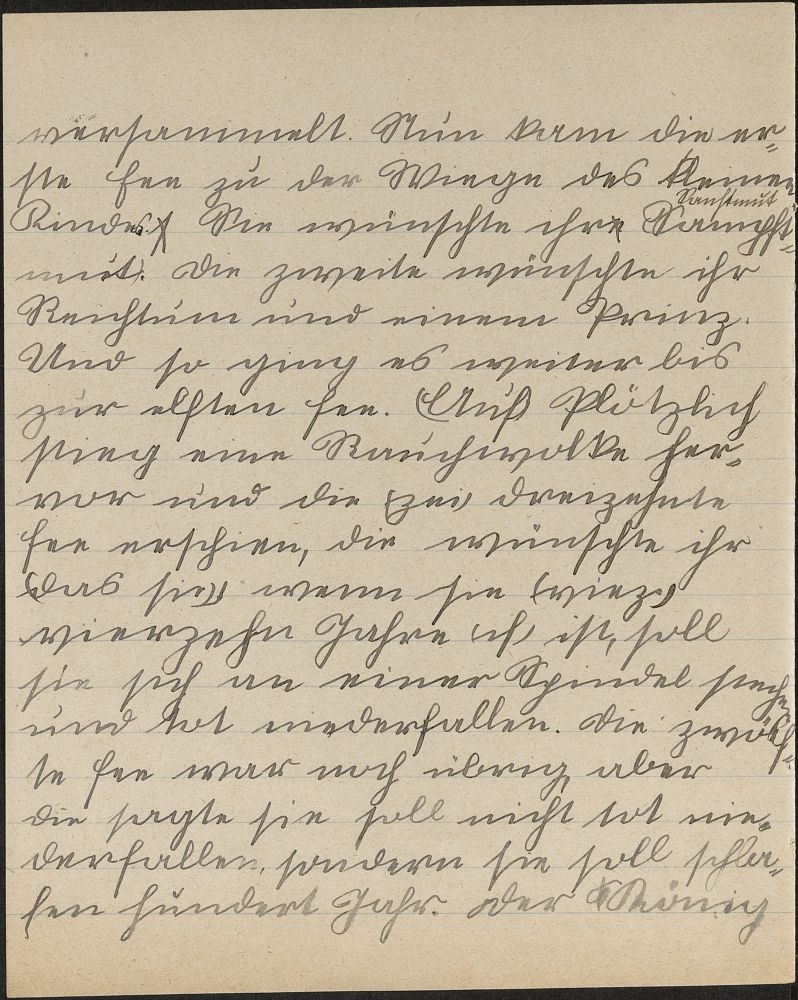 versammelt. Nun kam die er=
ste fee zu der Wiege des kleinen
Sanftmut
Kindes. Sie wünschte ihr Sampft=
mut. die zweite wünschte ihr
Reichtum und einem Prinz.
Und so ging es weiter bis
zur elften fee. (Auf) Plötzlich
stieg eine Rauchwolke her=
vor und die (zei) dreizehnte
fee erschien, die wünschte ihr
(das sie) wenn sie (viez)
vierzehn Jahre (ch) ist, soll
sie sich an einer Spindel stechen
und tot niederfallen. die zwölf=
te fee war noch übrig, aber
die sagte sie soll nicht tot nie=
derfallen, sondern sie soll schla=
fen hundert Jahr. der König